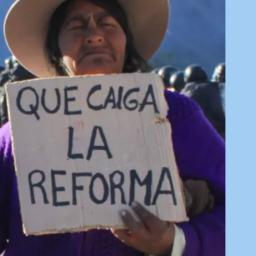 QUE CAIGA
LA
REFORMA